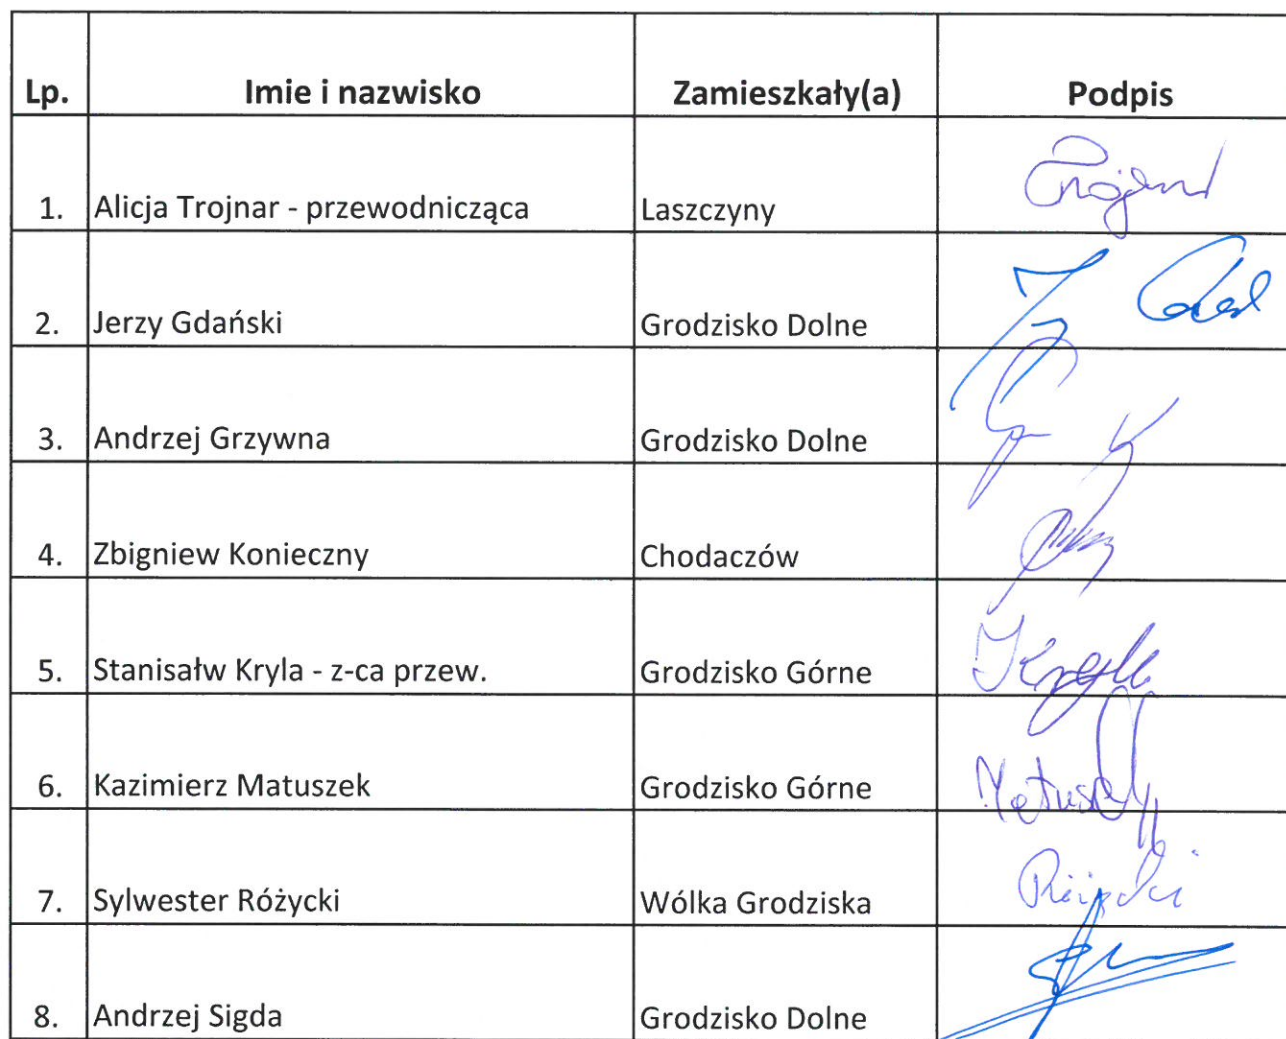 Lp. Imie i nazwisko Zamieszkały(a) Podpis
1. Alicja Trojnar - przewodnicząca Laszczyny Trojnar
2. Jerzy Gdański Grodzisko Dolne
3. Andrzej Grzywna Grodzisko Dolne
4. Zbigniew Konieczny Chodaczów
5. Stanisałw Kryla - z-ca przew. Grodzisko Górne
6. Kazimierz Matuszek Grodzisko Górne Matuszek
7. Sylwester Różycki Wólka Grodziska Różycki
8. Andrzej Sigda Grodzisko Dolne